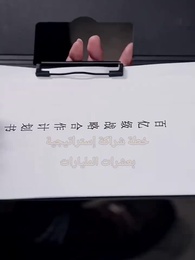 百亿级战略合作计划书
خطة شراكة إستراتيجية
بعشرات المليارات